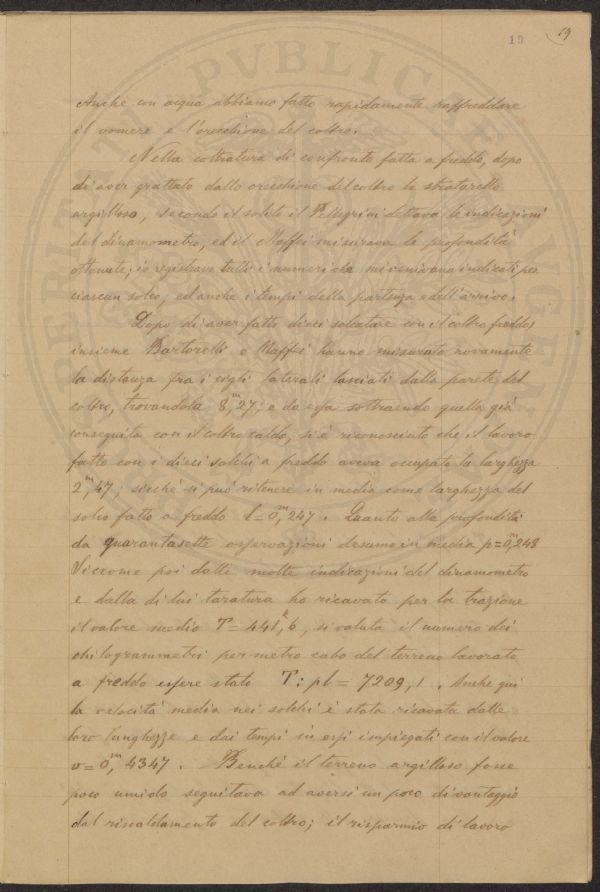 19 19
Anche con acqua abbiamo fatto rapidamente raffreddare
il vomere e l'orecchione del coltro.
Nella coltratura di confronto fatta a freddo, dopo
di aver grattato dallo orecchione del coltro lo stratarello
argilloso, secondo il solito il Pellegrini dettava le indicazioni
del dinamometro, ed il Maffei misurava le profondità
ottenute; io registravo tutti i numeri che mi venivano indicati per
ciascun solco, ed anche i tempi della partenza e dell'arrivo.
Dopo di aver fatto dieci solcature con il coltro freddo,
insieme Bartorelli e Maffei hanno misurato novamente
la distanza fra i cigli laterali lasciati dalla parete del
coltro, trovandola 8,ᵐ27; e da essa sottraendo quella già
conseguita con il coltro caldo, si è riconosciuto che il lavoro
fatto con i dieci solchi a freddo aveva occupato la larghezza
2,ᵐ47; sicchè si può ritenere in media come larghezza del
solco fatto a freddo l=0,ᵐ247. Quanto alla profondità
da quarantasette osservazioni desumo in media p=0,ᵐ248
Siccome poi dalle molte indicazioni del dinamometro
e dalla di lui taratura ho ricavato per la trazione
il valore medio T=441,ᵏ6, si valuta il numero dei
chilogrammetri per metro cubo del terreno lavorato
a freddo essere stato T:pl=7209,1. Anche qui
la velocità media nei solchi è stata ricavata dalle
loro lunghezze e dai tempi in essi impiegati con il valore
v=0,ᵐ4347. Benchè il terreno argilloso fosse
poco umido seguitava ad aversi un poco di vantaggio
dal riscaldamento del coltro; il risparmio di lavoro